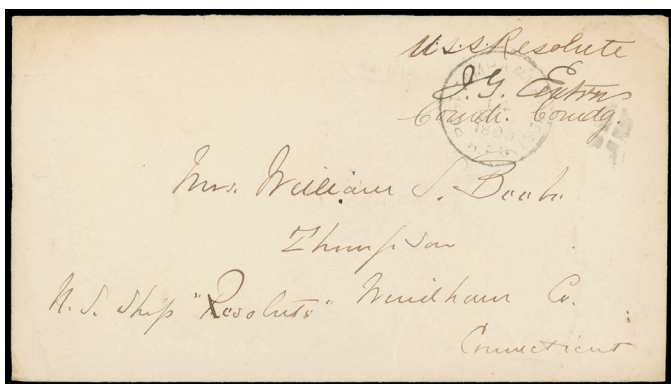 U.S.S. Resolute
J. G. Eaton
Comdr. Comdg.
1898
Mrs. William S.
Thompson
U. S. Ship "Resolute" Windham Co.
Connecticut